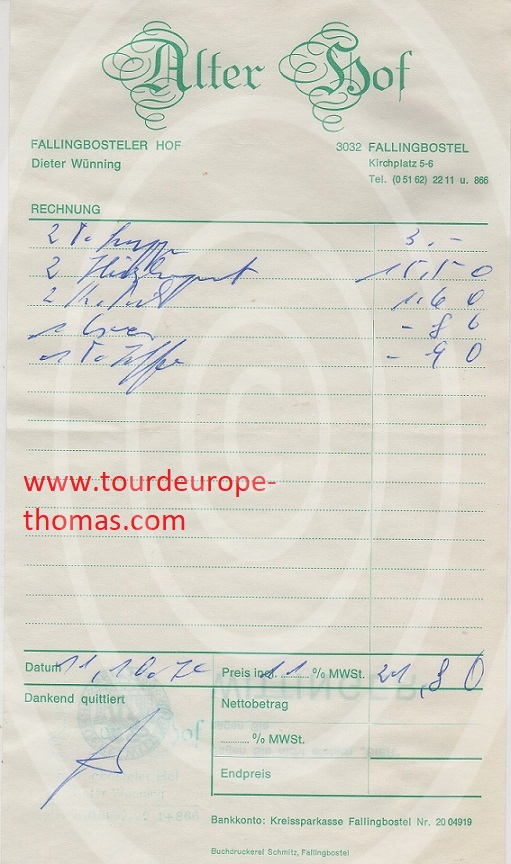 Alter Hof
FALLINGBOSTELER HOF 3032 FALLINGBOSTEL
Dieter Wünning Kirchplatz 5-6
Tel. (0 51 62) 22 11 u. 866
RECHNUNG
2 T. Suppe 3.-
2 15,50
2 1,60
1 -80
1 T. Kaffe -90
www.tourdeurope-
thomas.com
Datum 11,10.7 Preis incl. 11 % MWST. 21,80
Dankend quittiert Nettobetrag
% MWSt.
Endpreis
Bankkonto: Kreissparkasse Fallingbostel Nr. 20 04919
Buchdruckerei Schmitz, Fallingbostel